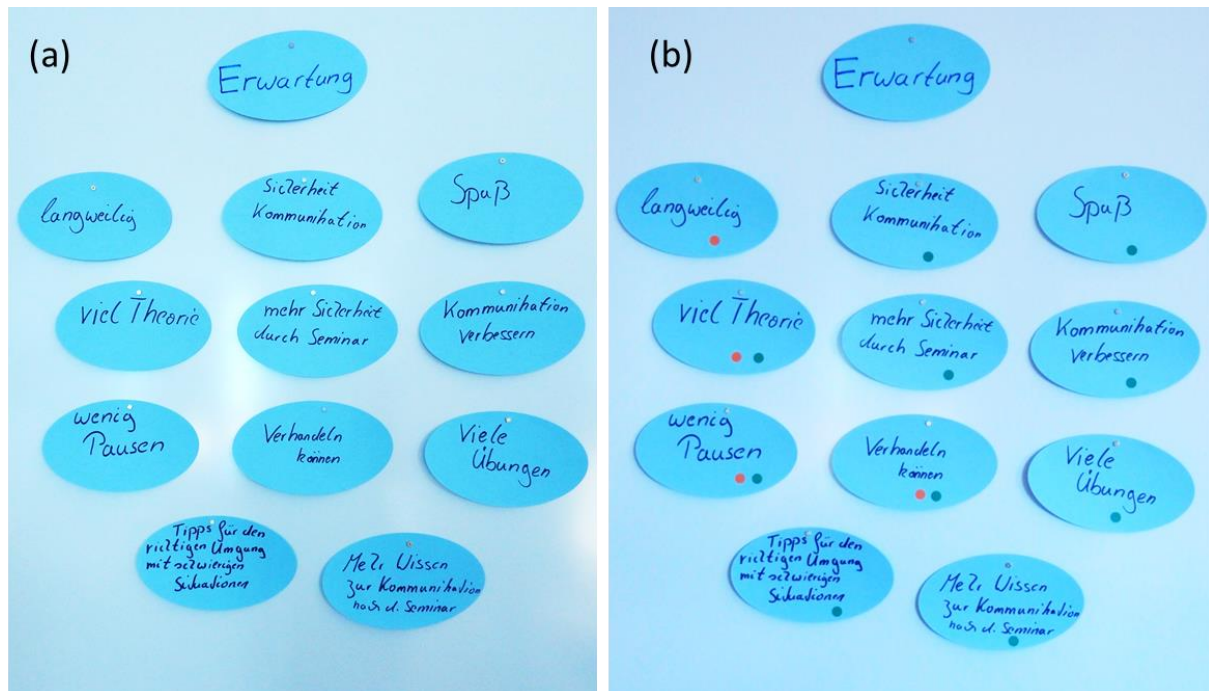 (a)
Erwartung
langweilig
Sicherheit
Kommunikation
Spaß
viel Theorie
mehr Sicherheit
durch Seminar
Kommunikation
verbessern
wenig
Pausen
Verhandeln
können
Viele
Übungen
Tipps für den
richtigen Umgung
mit schwierigen
Situationen
Mehr Wissen
zur Kommunikation
nach d. Seminar
(b)
Erwartung
langweilig
Sicherheit
Kommunikation
Spaß
viel Theorie
mehr Sicherheit
durch Seminar
Kommunikation
verbessern
wenig
Pausen
Verhandeln
können
Viele
Übungen
Tipps für den
richtigen Umgung
mit schwierigen
Situationen
Mehr Wissen
zur Kommunikation
nach d. Seminar